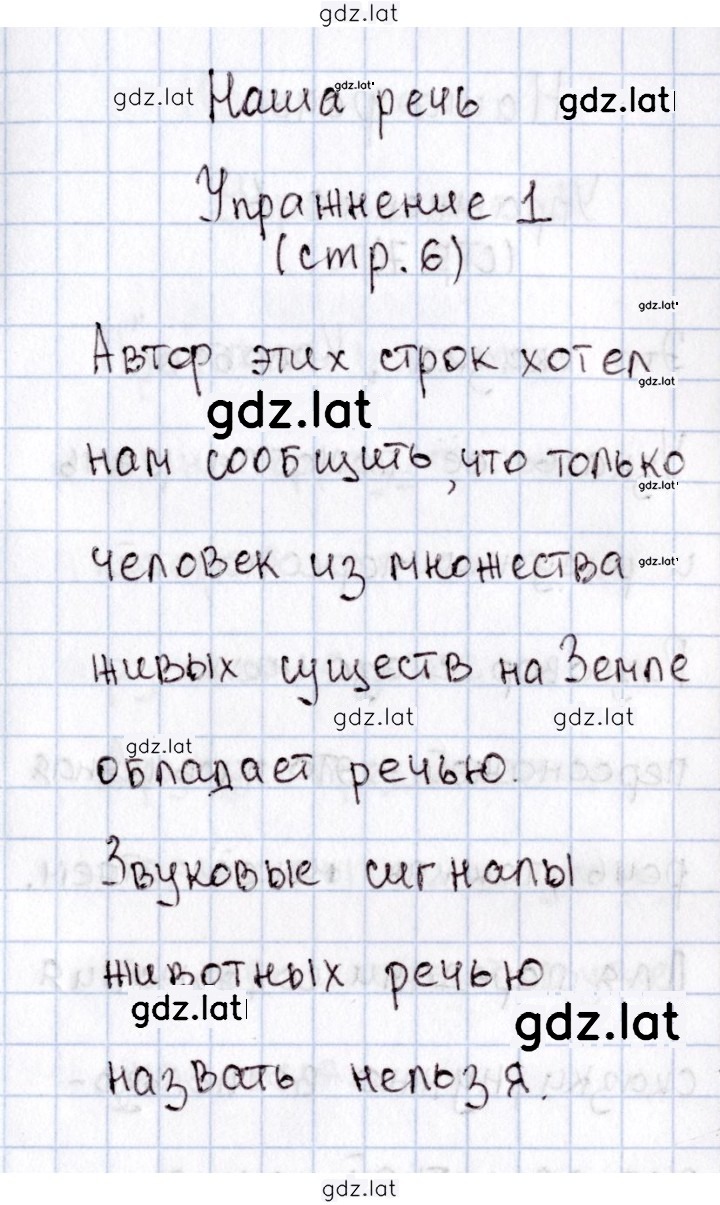 gdz.lat
gdz.lat Наша gdz.lat речь gdz.lat
Упражнение 1
(стр. 6)
gdz.lat
Автор этих строк хотел
gdz.lat
gdz.lat
нам сообщить, что только
gdz.lat
человек из множества gdz.lat
живых существ на Земле
gdz.lat gdz.lat
gdz.lat
обладает речью.
Звуковые сигналы
животных речью
gdz.lat gdz.lat
назвать нельзя.
gdz.lat